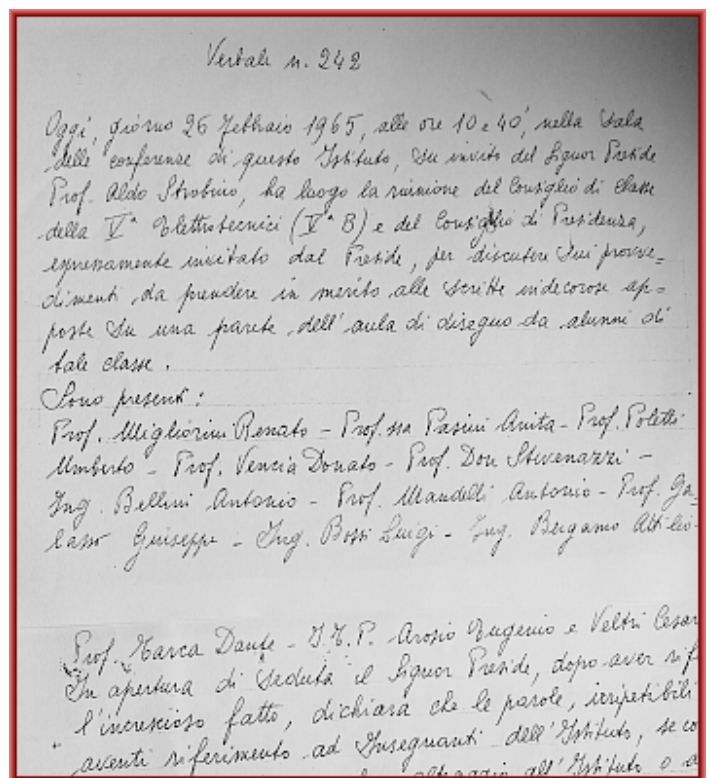 Verbale n. 242
Oggi, giorno 26 Febbraio 1965, alle ore 10 e 40', nella Sala
delle conferenze di questo Istituto, su invito del Signor Preside
Prof. Aldo Strobino, ha luogo la riunione del Consiglio di Classe
della Vª Elettrotecnici (Vª B) e del Consiglio di Presidenza,
espressamente invitato dal Preside, per discutere sui provve=
dimenti da prendere in merito alle scritte indecorose ap=
poste su una parete dell'aula di disegno da alunni di
tale classe.
Sono presenti:
Prof. Migliorini Renato - Prof.ssa Pasini Anita - Prof. Poletti
Umberto - Prof. Vencia Donato - Prof. Don Stevenazzi -
Ing. Bellini Antonio - Prof. Mandelli Antonio - Prof. Ga=
lasso Giuseppe - Ing. Bossi Luigi - Ing. Bergamo Attilio -
Prof. Marca Dante - I.T.P. Arosio Eugenio e Veltri Cesar
In apertura di seduta il Signor Preside, dopo aver rif
l'increscioso fatto, dichiara che le parole, irripetibili
aventi riferimento ad Insegnanti dell'Istituto, se co
oltraggio all'Istituto o a